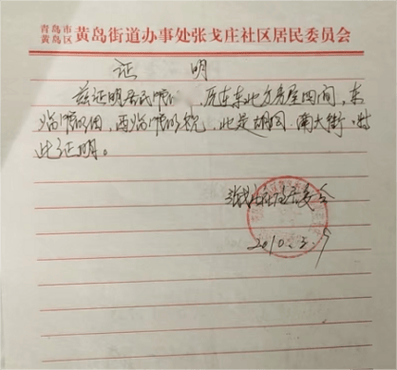 青岛市
黄岛区 黄岛街道办事处张戈庄社区居民委员会
证 明
兹证明居民 ，历在东北方房屋四间，东
临 ，西临 ，北是胡同，南大街。特
此证明。
张戈庄社区居委会
2010.3.5